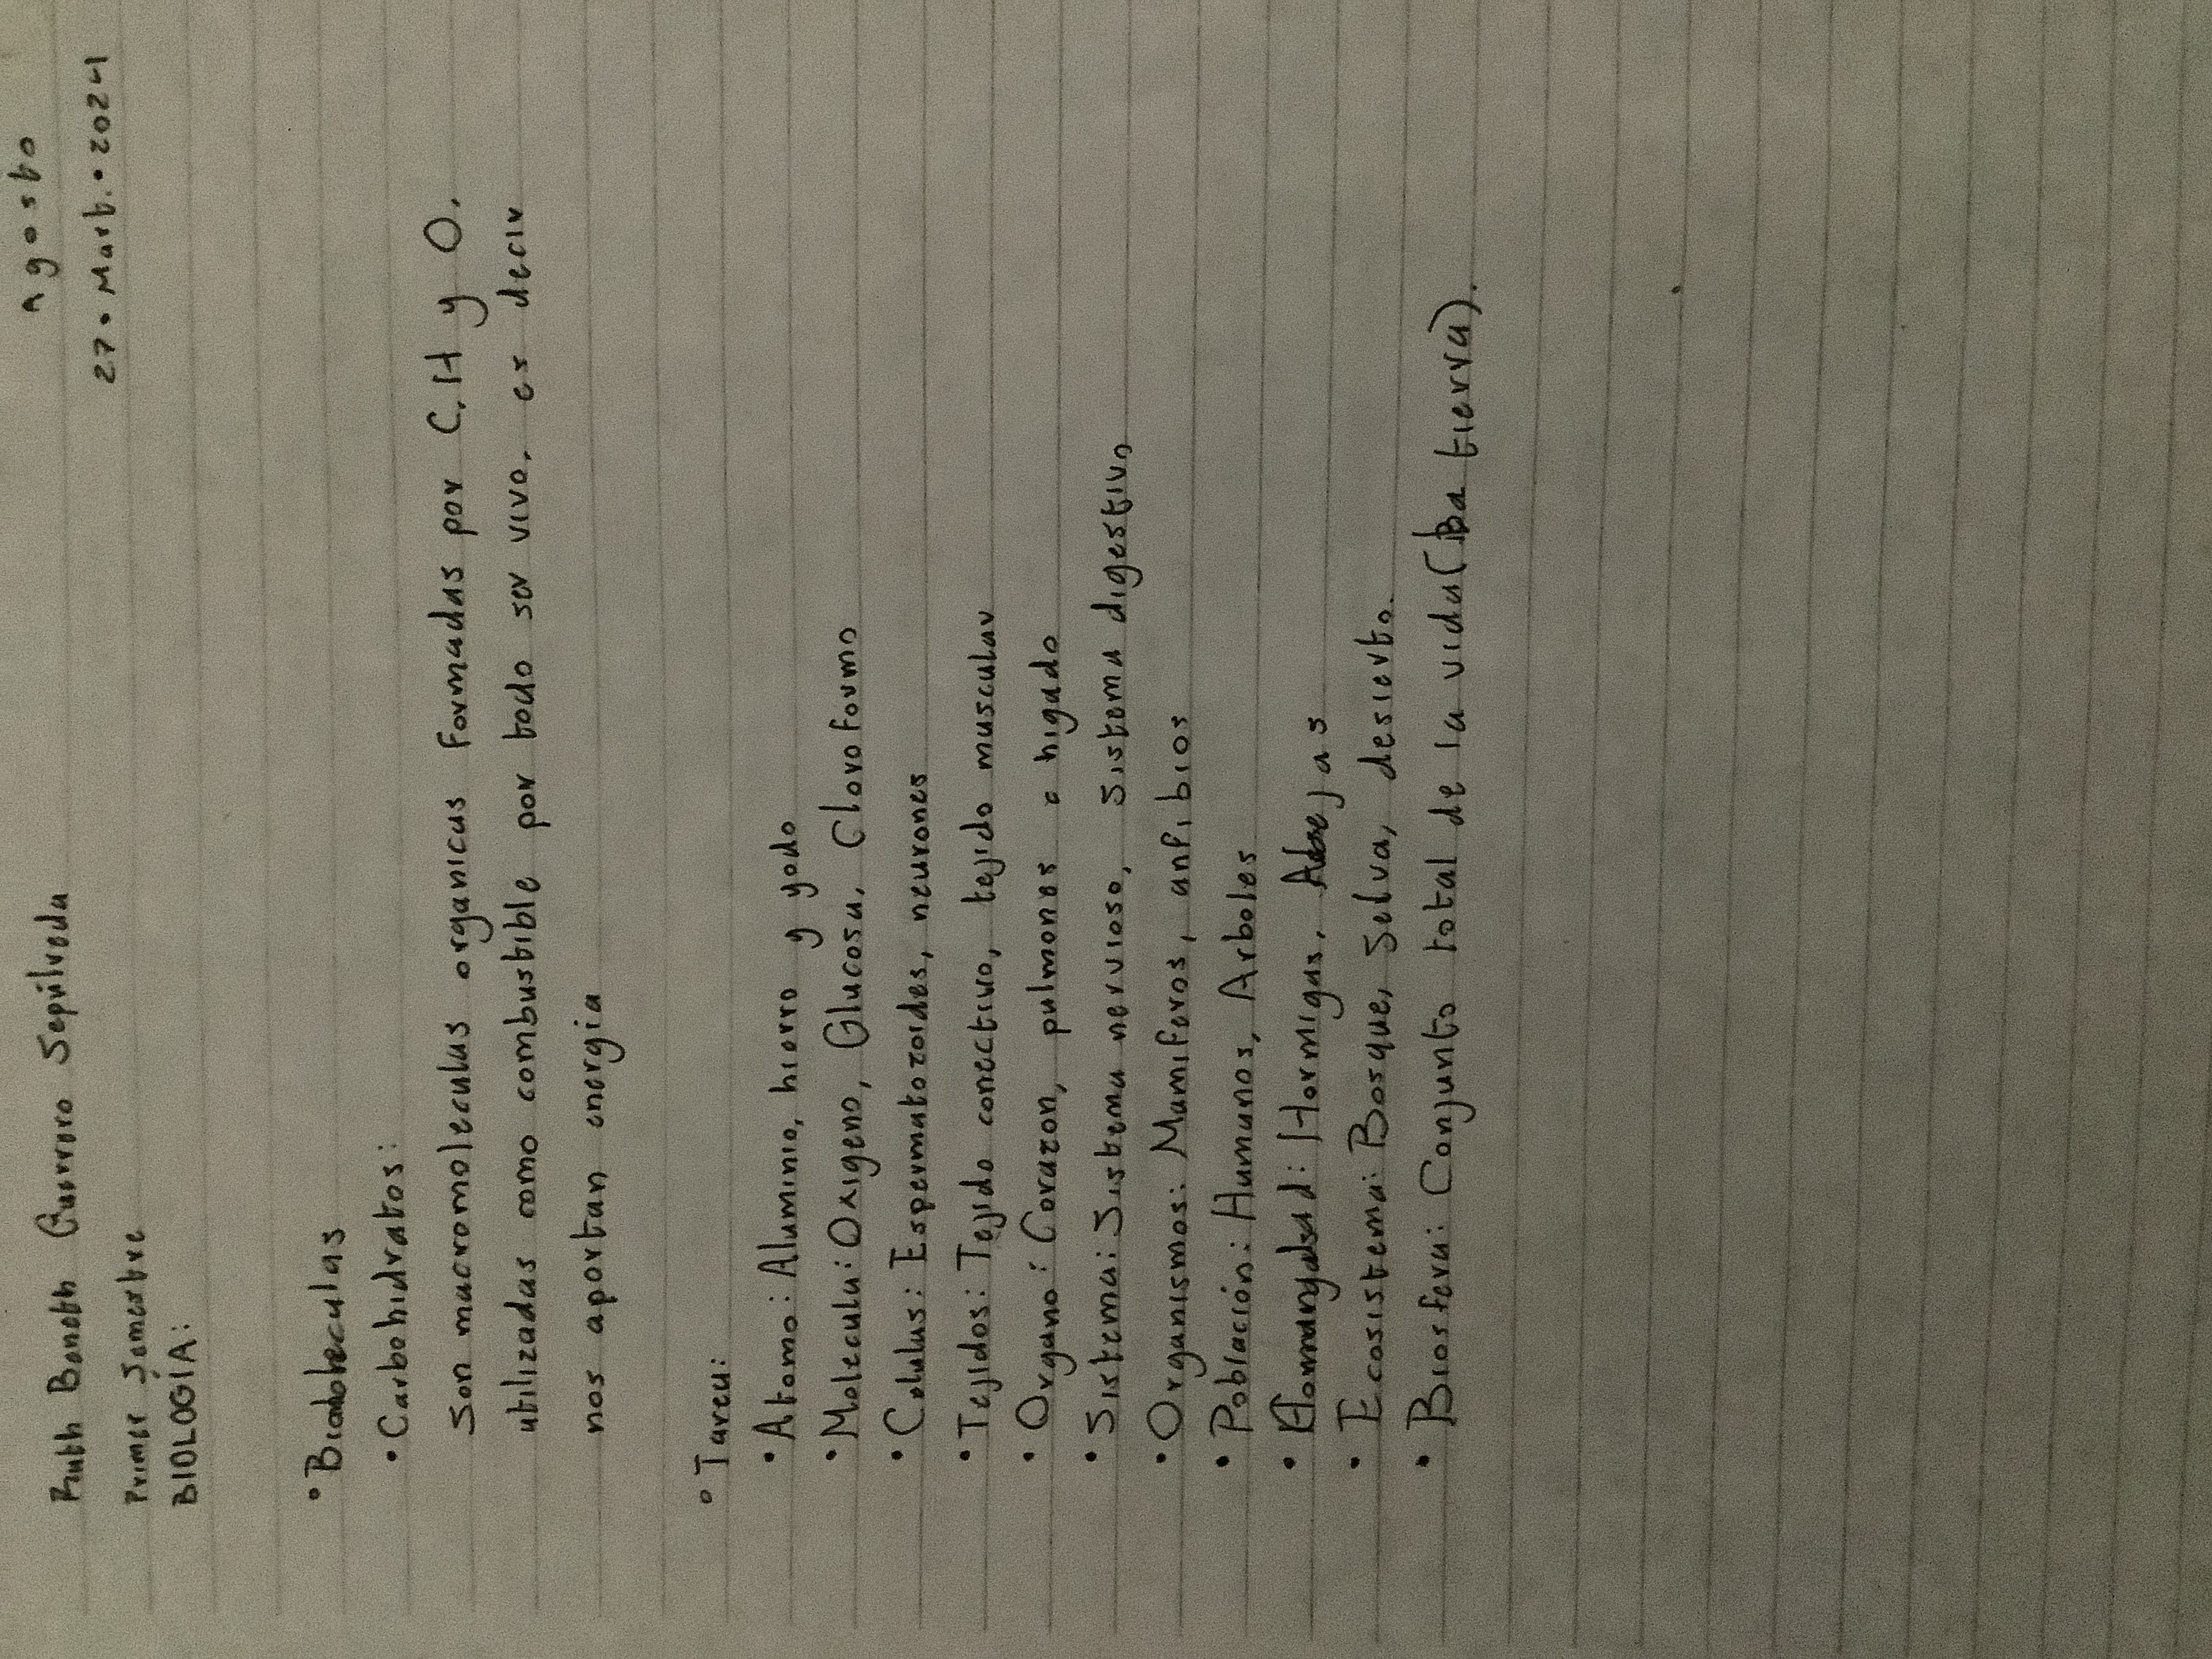 Agosto
Ruth Baneth Guerrero Sepúlveda 27 • Mart. • 2024
Primer Semestre
BIOLOGÍA:
• Biomoleculas
• Carbohidratos:
Son macromoleculas organicas formadas por C, H y O,
utilizadas como combustible por todo ser vivo, es decir
nos aportan energia
° Tarea:
• Atomo: Aluminio, hierro y yodo
• Molecula: Oxigeno, Glucosa, Cloroformo
• Celulas: Espermatozoides, neurones
• Tejidos: Tejido conectivo, tejido muscular
• Organo: Corazon, pulmones e higado
• Sistema: Sistema nervioso, Sistema digestivo
• Organismos: Mamiferos, anfibios
• Población: Humanos, Arboles
• : Hormigas, Abejas
• Ecosistema: Bosque, Selva, desierto.
• Biosfera: Conjunto total de la vida (la tierra).